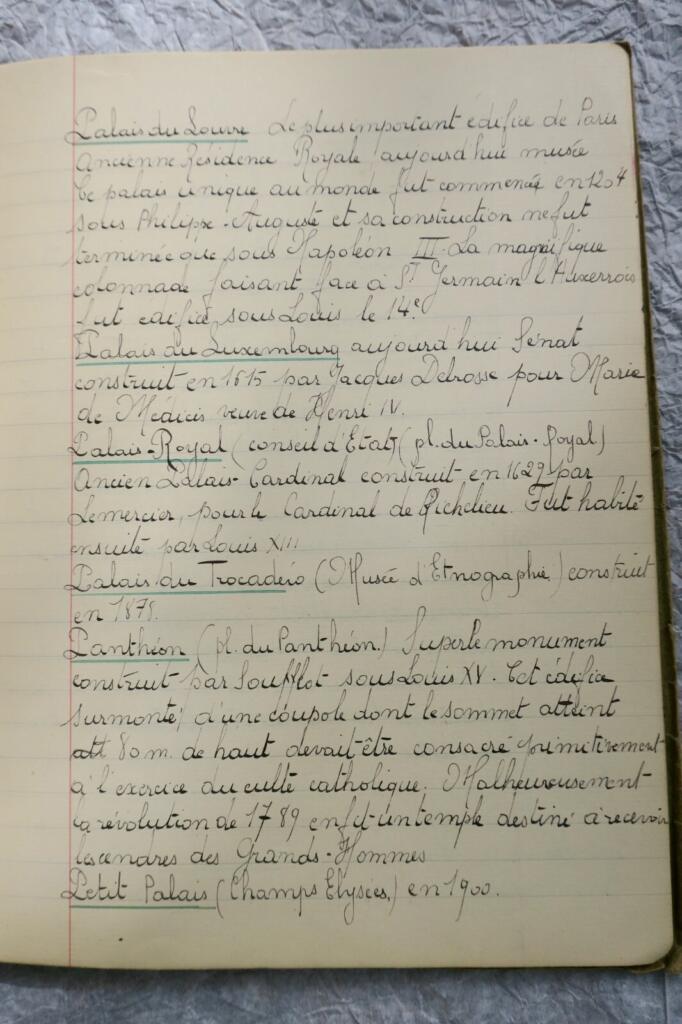 Palais du Louvre Le plus important édifice de Paris
Ancienne Résidence Royale aujourd'hui musée
Ce palais unique au monde fut commencé en 1204
sous Philippe-Auguste et sa construction ne fut
terminée que sous Napoléon III. La magnifique
colonnade faisant face à St Germain l'Auxerrois
fut édifiée sous Louis le 14e.
Palais du Luxembourg aujourd'hui Sénat
construit en 1615 par Jacques Debrosse pour Marie
de Médicis veuve de Henri IV.
Palais-Royal (conseil d'Etat) (pl. du Palais-Royal)
Ancien Palais-Cardinal construit en 1629 par
Lemercier, pour le Cardinal de Richelieu. Fut habité
ensuite par Louis XIII
Palais du Trocadéro (Musée d'Etnographie) construit
en 1878.
Panthéon (pl. du Panthéon.) Superbe monument
construit par Soufflot sous Louis XV. Cet édifice
surmonté d'une coupole dont le sommet atteint
att 80 m. de haut devait être consacré primitivement
à l'exercice du culte catholique. Malheureusement
la révolution de 1789 en fit un temple destiné à recevoir
les cendres des Grands-Hommes
Petit Palais (Champs Elysées.) en 1900.